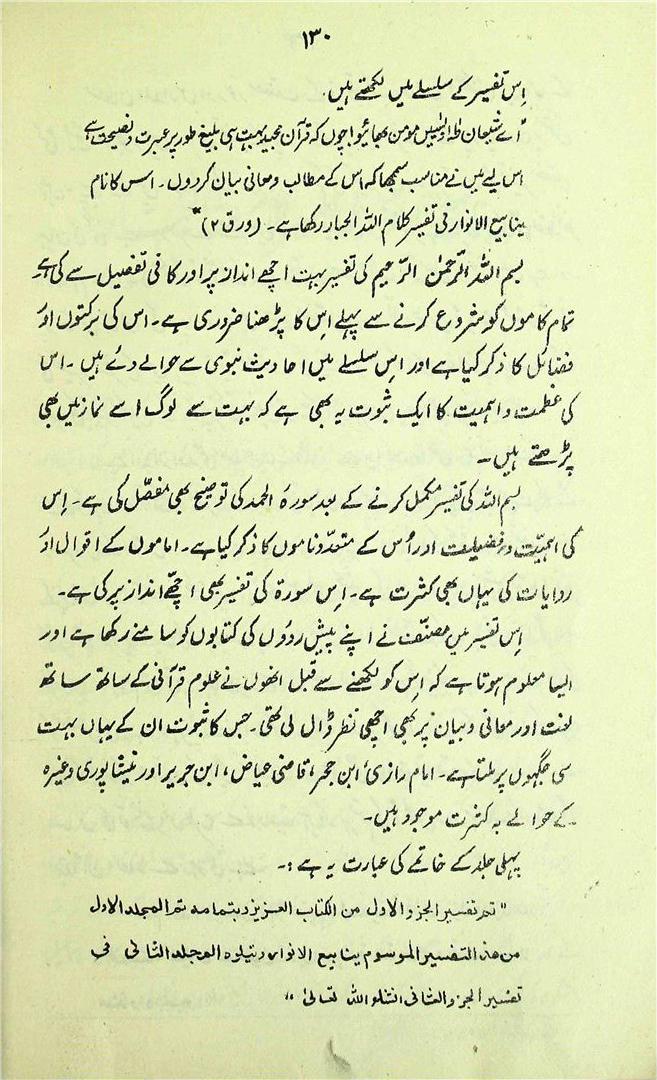 ۱۳۰
اِس تفسیر کے سلسلے میں لکھتے ہیں۔
"اے شیعان طٰہٰ و یٰسین مومن بھائیو! چوں کہ قرآن مجید بہت ہی بلیغ طور پر عبرت و نصیحت ہے
اس لیے میں نے مناسب سمجھا کہ اس کے مطالب و معانی بیان کر دوں۔ اس کا نام
ینابیع الانوار فی تفسیر کلام اللہ الجبار رکھا ہے۔ (ورق ۲)"
بسم اللہ الرّحمٰن الرّحیم کی تفسیر بہت اچھے انداز پر اور کافی تفصیل سے کی ہے۔
تمام کاموں کو شروع کرنے سے پہلے اِس کا پڑھنا ضروری ہے۔ اس کی برکتوں اور
فضائل کا ذکر کیا ہے اور اِس سلسلے میں احادیث نبوی سے حوالے دئے ہیں۔ اس
کی عظمت و اہمیت کا ایک ثبوت یہ بھی ہے کہ بہت سے لوگ اسے نماز میں بھی
پڑھتے ہیں۔
بسم اللہ کی تفسیر مکمل کرنے کے بعد سورۂ الحمد کی توضیح بھی مفصّل کی ہے۔ اِس
کی اہمیّت و فضیلت اور اُس کے متعدد ناموں کا ذکر کیا ہے۔ اماموں کے اقوال اور
روایات کی یہاں بھی کثرت ہے۔ اِس سورۃ کی تفسیر بھی اچھّے انداز پر کی ہے۔
اِس تفسیر میں مصنّف نے اپنے پیش رَووں کی کتابوں کو سامنے رکھا ہے اور
ایسا معلوم ہوتا ہے کہ اِس کو لکھنے سے قبل انھوں نے علوم قرآنی کے ساتھ ساتھ
لغت اور معانی و بیان پر بھی اچھی نظر ڈال لی تھی۔ جس کا ثبوت ان کے یہاں بہت
سی جگہوں پر ملتا ہے۔ امام رازی، ابن حجر، قاضی عیاض، ابن جریر اور نیشاپوری وغیرہ
کے حوالے بہ کثرت موجود ہیں۔
پہلی جلد کے خاتمے کی عبارت یہ ہے:۔
"تم تفسیر الجزو الاول من الکتاب العزیز و بتمامہ تم المجلد الاول
من ھذا التفسیر الموسوم ینابیع الانوار و یتیلوہ المجلد الثانی فی
تفسیر الجزو الثانی انشاو اللہ تعالیٰ"